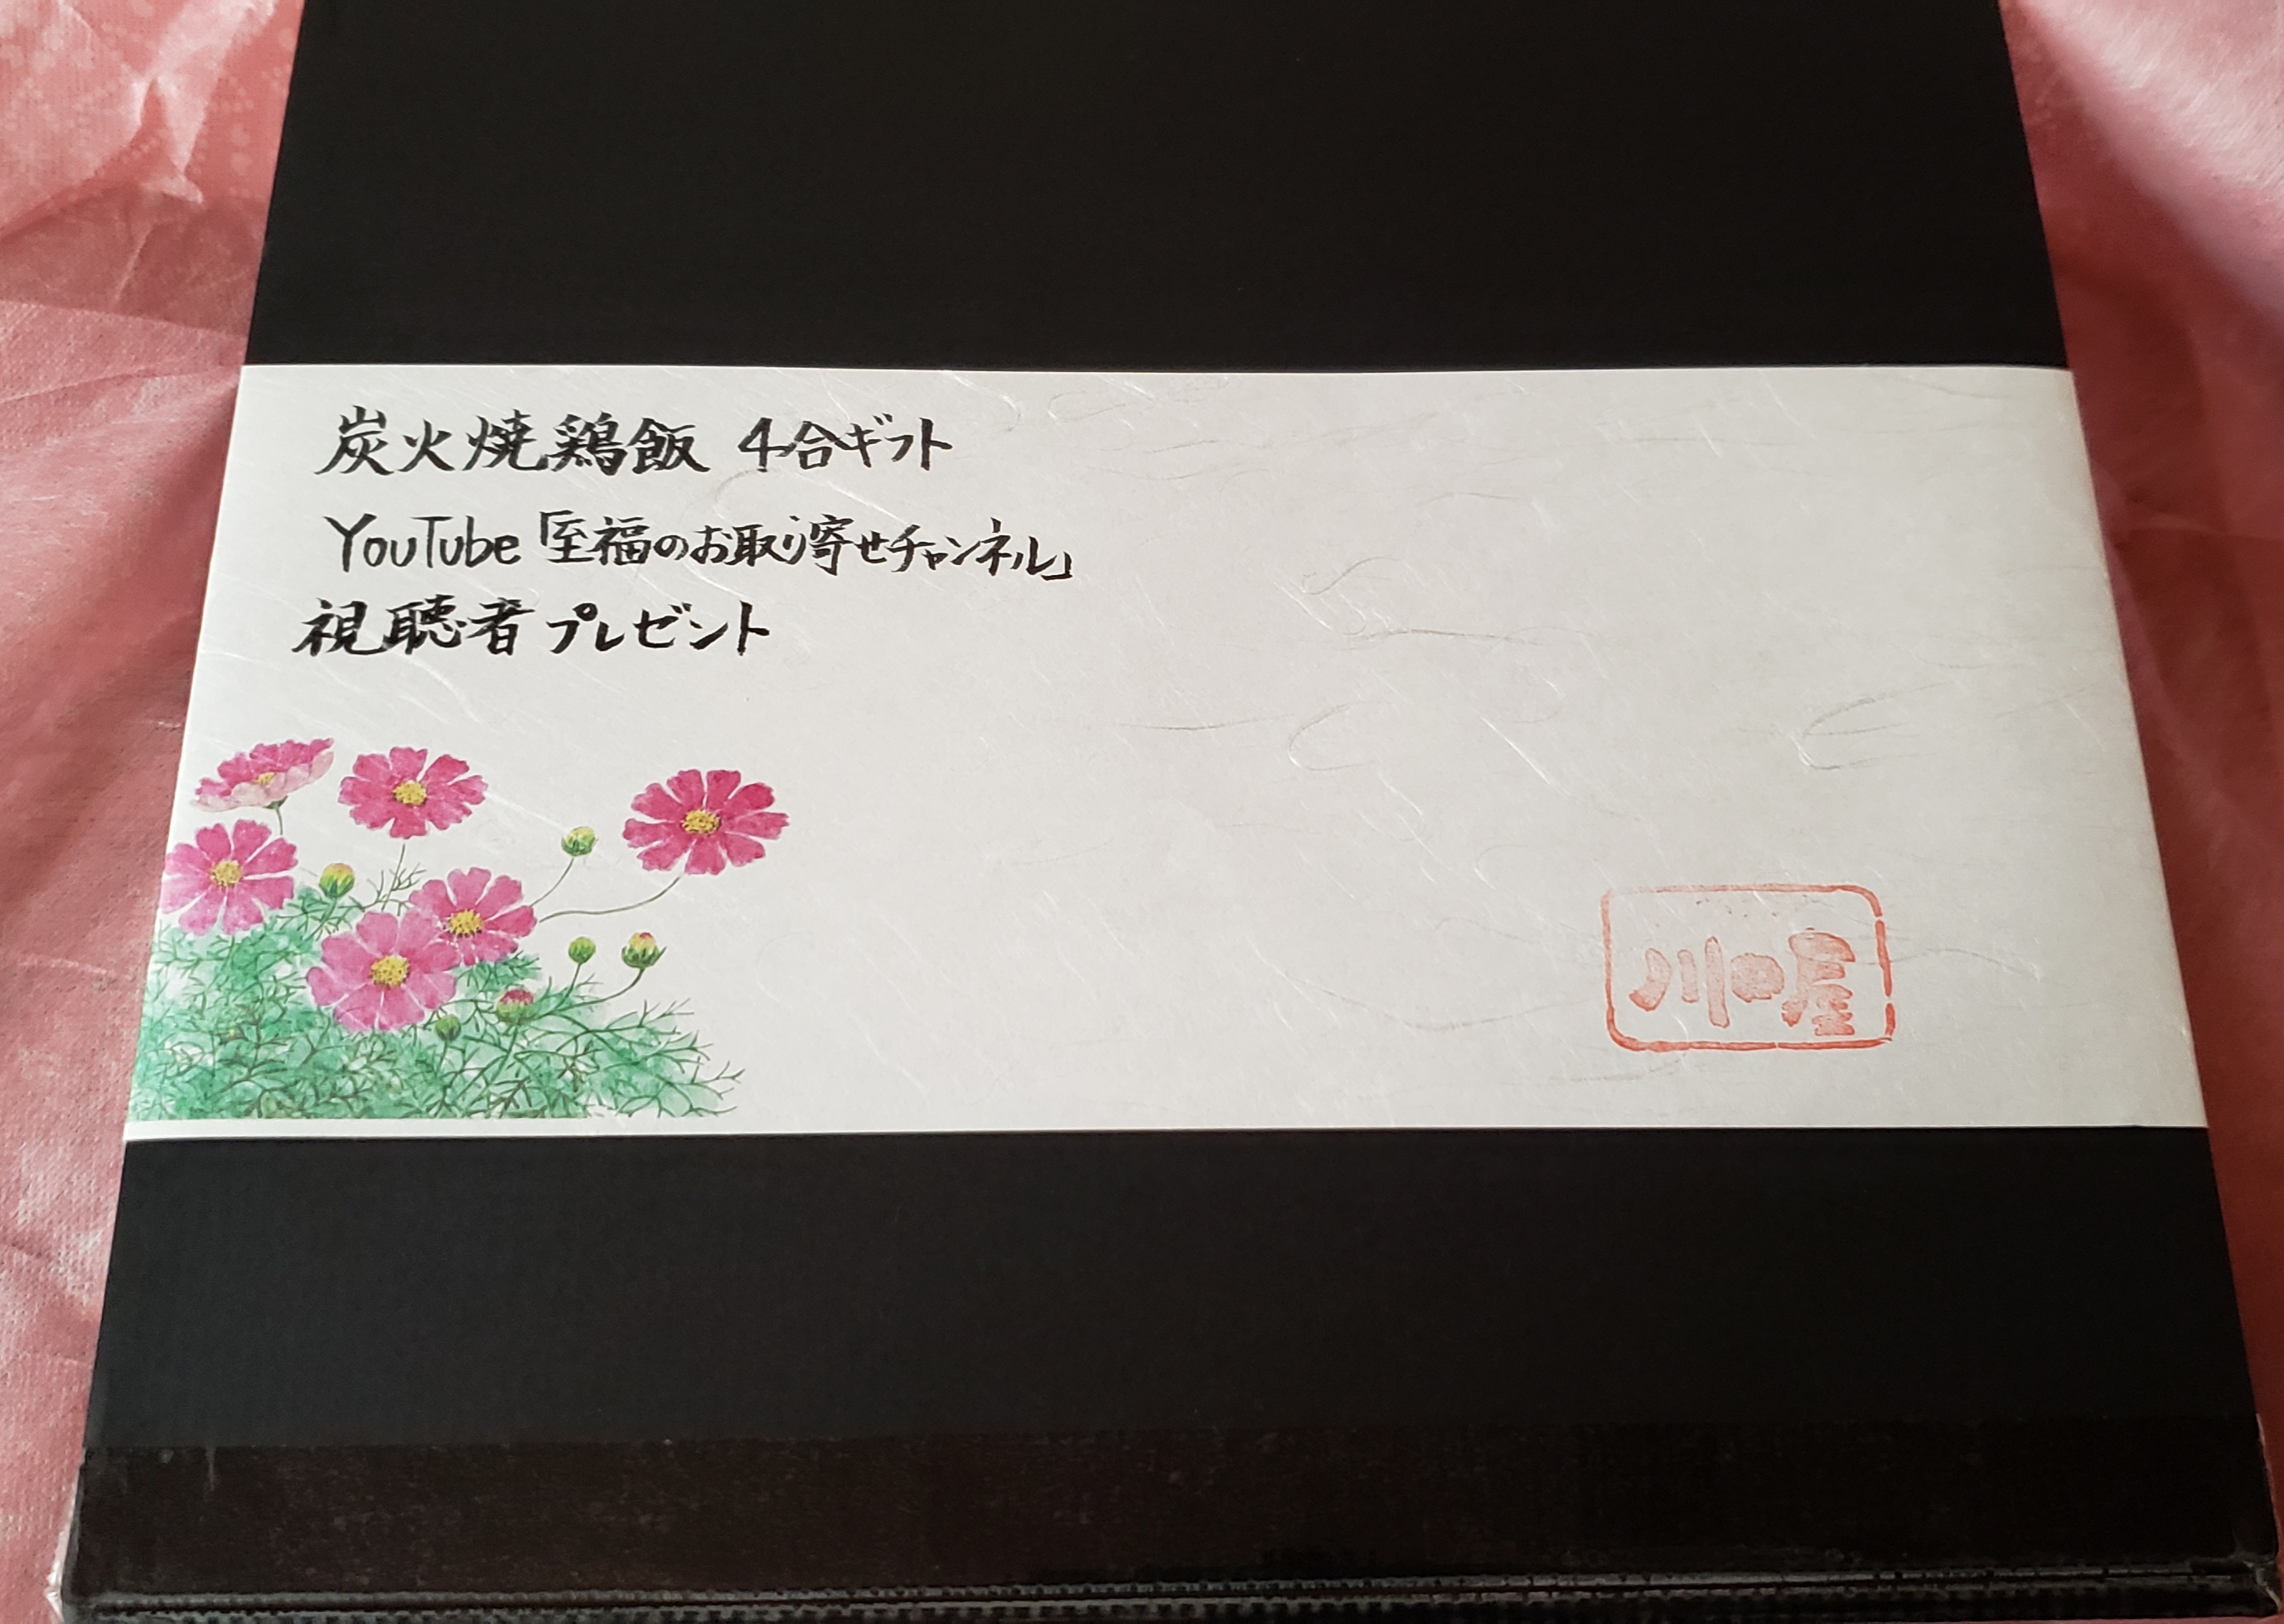 炭火焼鶏飯 4合ギフト
YouTube「至福のお取り寄せチャンネル」
視聴者プレゼント
川口屋